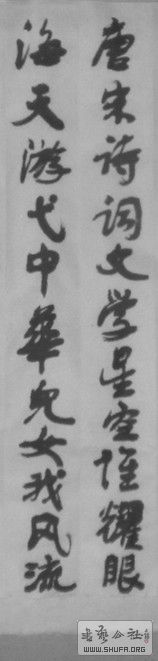 唐宋诗词文学星空谁耀眼
海天游弋中华儿女我风流
书艺公社
WWW.SHUFA.ORG